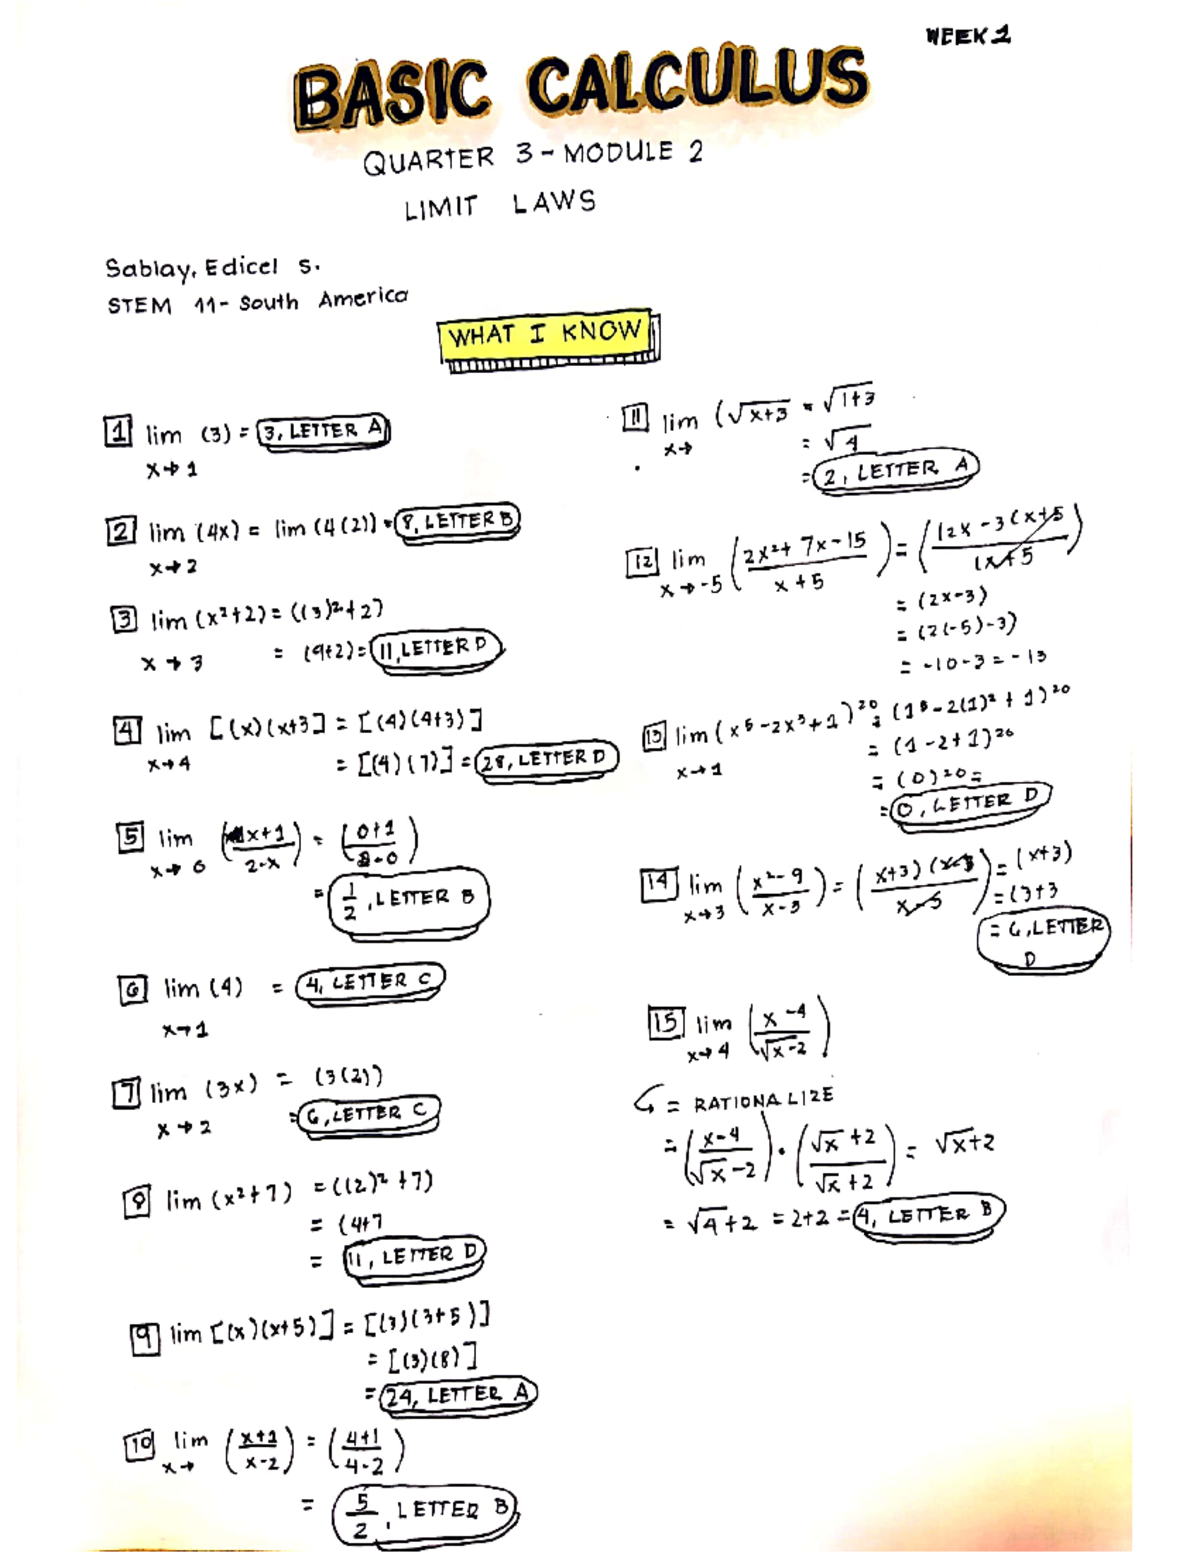 WEEK 1
BASIC CALCULUS
QUARTER 3 - MODULE 2
LIMIT LAWS
Sablay, Edicel S.
STEM 11 - South America
WHAT I KNOW
1 lim (3) = 3, LETTER A
x→1
2 lim (4x) = lim (4(2)) = 8, LETTER B
x→2
3 lim (x²+2) = ((3)²+2)
x→3 = (9+2) = 11, LETTER D
4 lim [(x)(x+3] = [(4)(4+3)]
x→4 = [(4)(7)] = 28, LETTER D
5 lim (x+1/2-x) = (0+1/2-0)
x→0
= 1/2, LETTER B
6 lim (4) = 4, LETTER C
x→1
7 lim (3x) = (3(2))
x→2 = 6, LETTER C
8 lim (x²+7) = ((2)²+7)
= (4+7
= 11, LETTER D
9 lim [(x)(x+5)] = [(3)(3+5)]
= [(3)(8)]
= 24, LETTER A
10 lim (x+1/x-2) = (4+1/4-2)
x→
= 5/2, LETTER B
11 lim (√x+3 = √1+3
x→ = √4
= 2, LETTER A
12 lim (2x²+7x-15/x+5) = ((2x-3(x+5/(x+5)
x→-5
= (2x-3)
= (2(-5)-3)
= -10-3 = -13
13 lim (x⁵-2x³+1)²⁰ = (1⁵-2(1)²+1)²⁰
x→1 = (1-2+1)²⁰
= (0)²⁰ =
= 0, LETTER D
14 lim (x²-9/x-3) = (x+3)(x-3/x-3) = (x+3)
x→3 = (3+3
= 6, LETTER
D
15 lim (x-4/√x-2)
x→4
= RATIONALIZE
= (x-4/√x-2) · (√x+2/√x+2) = √x+2
= √4+2 = 2+2 = 4, LETTER B